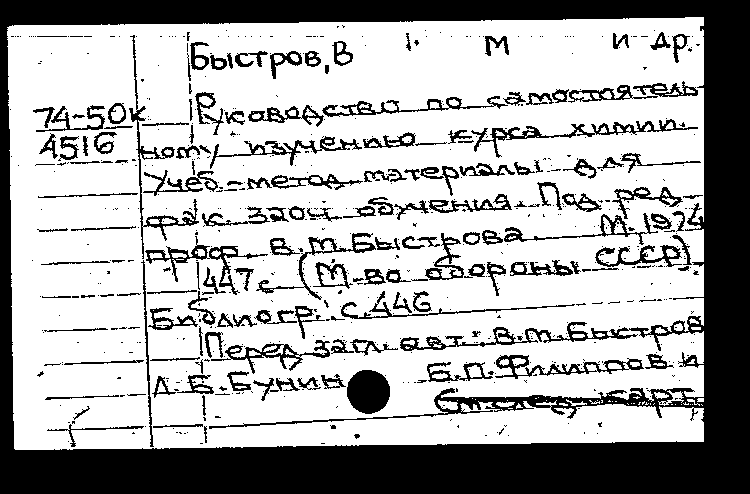 Быстров, В. М. и др.
74-50к Руководство по самостоятель-
4516 ному изучению курса химии.
Учеб.-метод. материалы для
фак. заоч. обучения. Под ред.
проф. В.М. Быстрова. М. 1974
447 с (М-во обороны СССР)
Библиогр.: с. 446.
Перед загл. авт.: В.М. Быстров
Б.П. Филиппов и
Л.Б. Бунин
См след. карт.